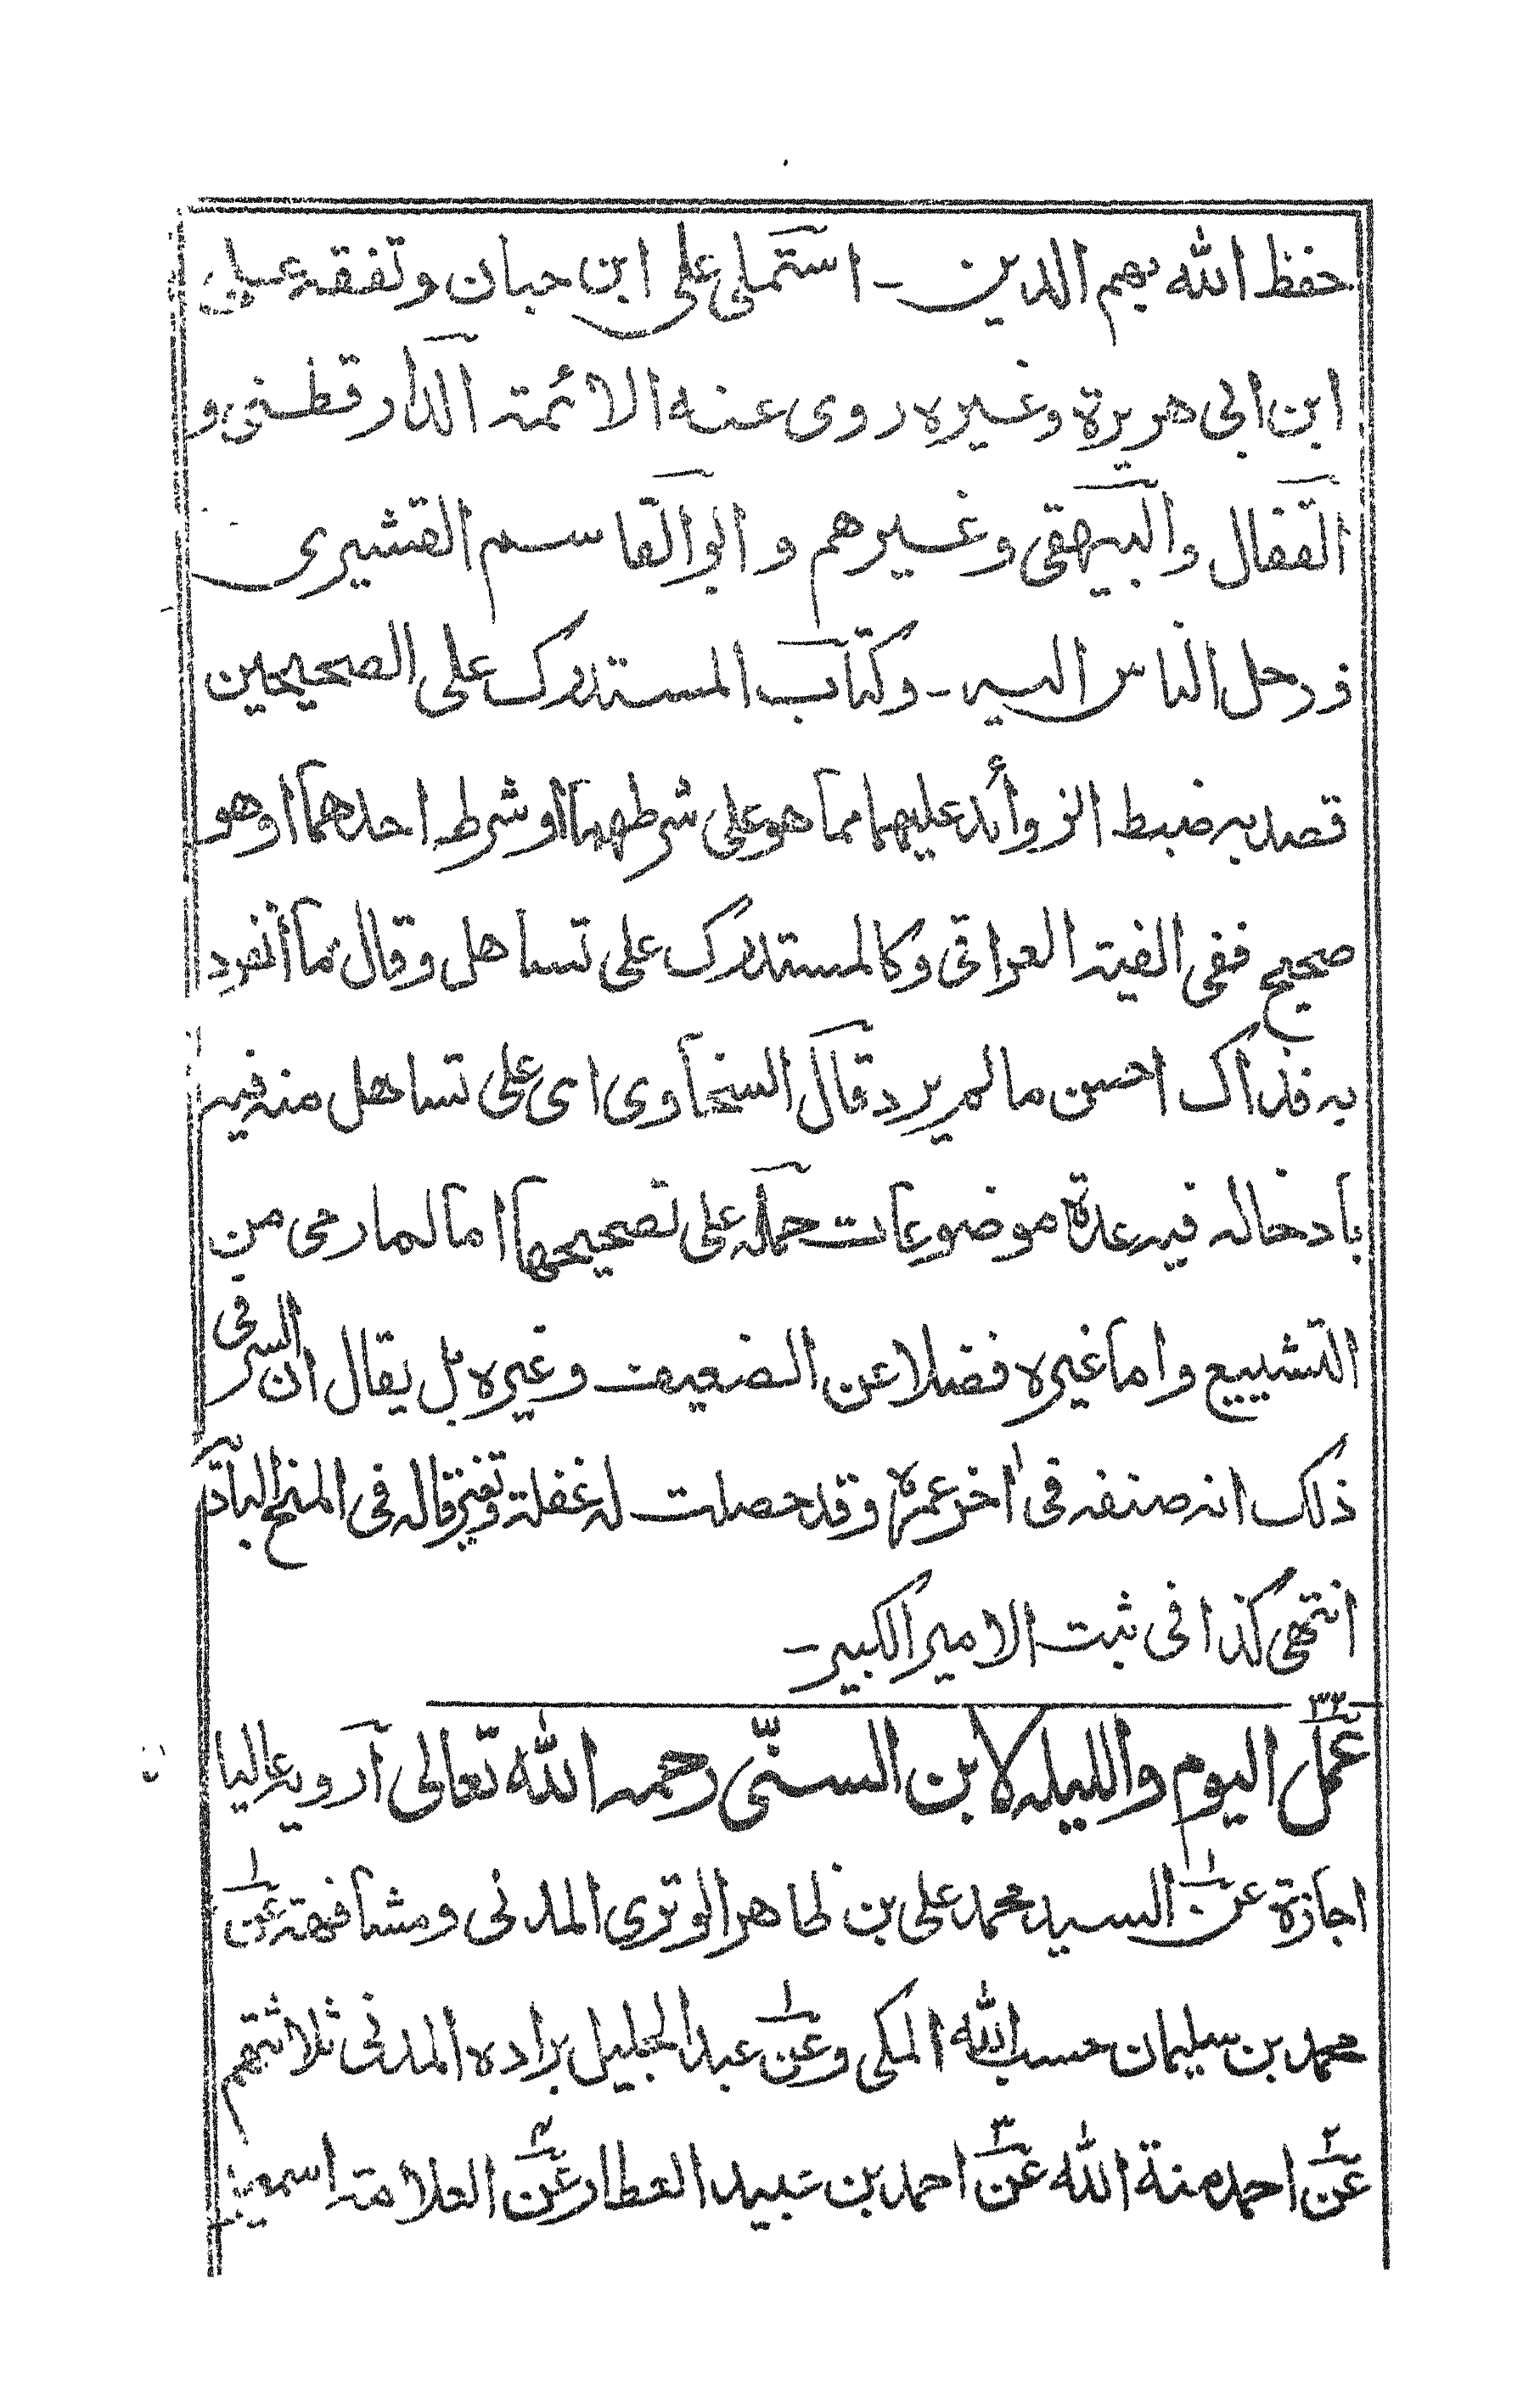 حفظ الله بهم الدين ـ استملى على ابن حبان وتفقه على
ابن ابى هريرة وغيره روى عنه الائمة الدارقطنى و
القفال والبيهقى وغيرهم و ابوالقاسم القشيرى
ورحل الناس اليه ـ وكتاب المستدرك على الصحيحين
قصد به ضبط الزوائد عليهما مما هو على شرطهما او شرط احدهما او هو
صحيح ففى الفية العراقى وكالمستدرك على تساهل وقال ما انفرد
به فذاك احسن مالم يرد قال السخاوى اى على تساهل منه فيه
بادخاله فيه عدة موضوعات حمله على تصحيحها اما لما رمى من
التشييع واما غيره فضلا عن الضعيف وغيره بل يقال ان السر فى
ذلك انه صنفه فى اخر عمره وقد حصلت له غفلة وتغير قاله فى المنح البادية
انتهى كذا فى ثبت الامير الكبير ـ
٣٣ عمل اليوم والليله لابن السنّى رحمه الله تعالى ارويه عاليا
اجازة عن ١ السيد محمد على بن ظاهر الوترى المدنى ومشافهة عن ١
محمد بن سليمان حسب الله المكى وعن ١ عبد الجليل براده المدنى ثلاثتهم
عن ٢ احمد منة الله عن ٣ احمد بن عبيد العطار عن ٤ العلامة اسمعيل